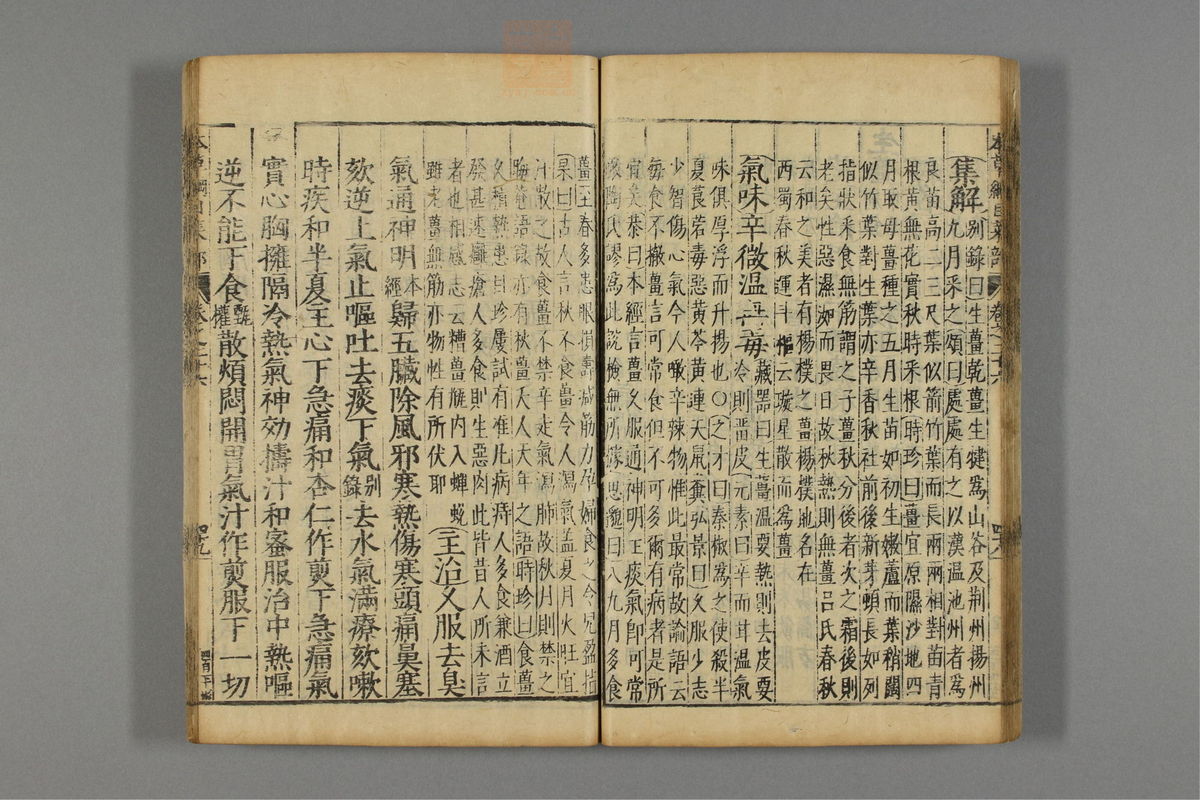 本草綱目菜部 卷之二十六 四十八
集解別錄曰生薑乾薑生犍爲山谷及荆州揚州
九月采之頌曰處處有之以漢温池州者爲
良苗高二三尺葉似箭竹葉而長兩兩相對苗青
根黃無花實秋時采根時珍曰薑宜原隰沙地四
月取母薑種之五月生苗如初生嫩蘆而葉稍闊
似竹葉對生葉亦辛香秋社前後新芽頓長如列
指狀采食無筋謂之子薑秋分後者次之霜後則
老矣性惡濕洳而畏日故秋熱則無薑呂氏春秋
云和之美者有楊樸之薑楊樸地名在
西蜀春秋運斗樞云璇星散而爲薑
氣味辛微温無毒藏器曰生薑温要熱則去皮要
冷則畱皮元素曰辛而甘温氣
味俱厚浮而升揚也○之才曰秦椒爲之使殺半
夏莨菪毒惡黃芩黃連天鼠糞弘景曰久服少志
少智傷心氣今人噉辛辣物惟此最常故論語云
每食不撤薑言可常食但不可多爾有病者是所
宜矣恭曰本經言薑久服通神明主痰氣卽可常
服陶氏謬爲此說檢無所據思邈曰八九月多食
薑至春多患眼損壽減筋力孕婦食之令兒盈指
杲曰古人言秋不食薑令人瀉氣盖夏月火旺宜
汁散之故食薑不禁辛走氣瀉肺故秋月則禁之
晦菴語錄亦有秋薑夭人天年之語時珍曰食薑
久積熱患目珍屢試有准凡病痔人多食兼酒立
發甚速癰瘡人多食則生惡肉此皆昔人所未言
者也相感志云糟薑瓶内入蟬蛻
雖老薑無筋亦物性有所伏耶主治久服去臭
氣通神明本經歸五臟除風邪寒熱傷寒頭痛鼻塞
欬逆上氣止嘔吐去痰下氣別錄去水氣滿療欬嗽
時疾和半夏主心下急痛和杏仁作煎下急痛氣
實心胸擁隔冷熱氣神効擣汁和蜜服治中熱嘔
逆不能下食甄權散煩悶開胃氣汁作煎服下一切
本草綱目菜部 卷之二十六 四十九